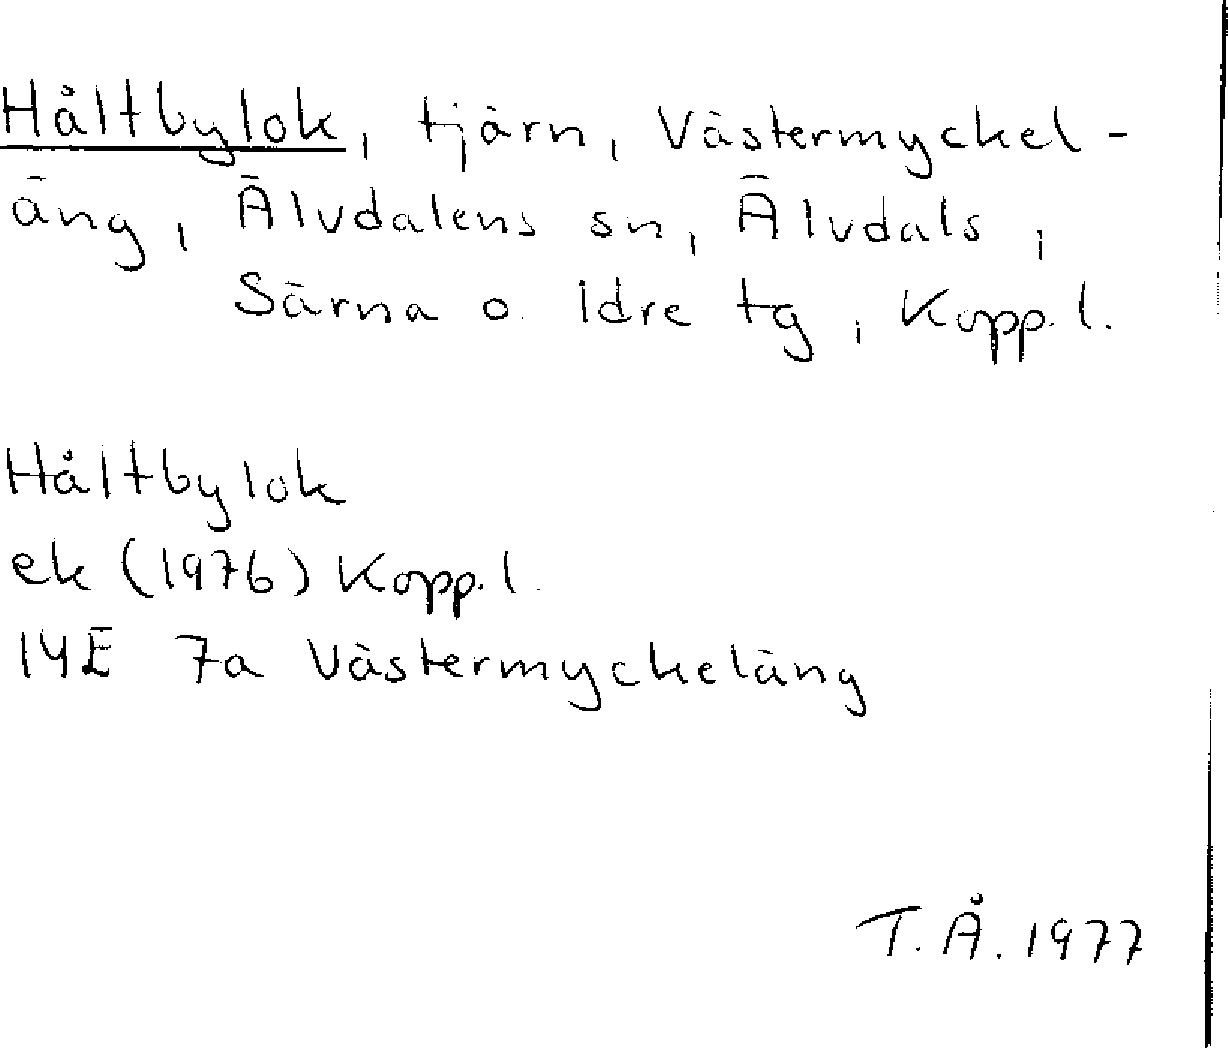 Håltbylok, tjärn, Västermyckel-
äng, Älvdalens sn, Älvdals,
Särna o. Idre tg, Kopp. l.
Håltbylok
ek (1976) Kopp. l.
14E 7a Västermyckeläng
T. Å. 1977